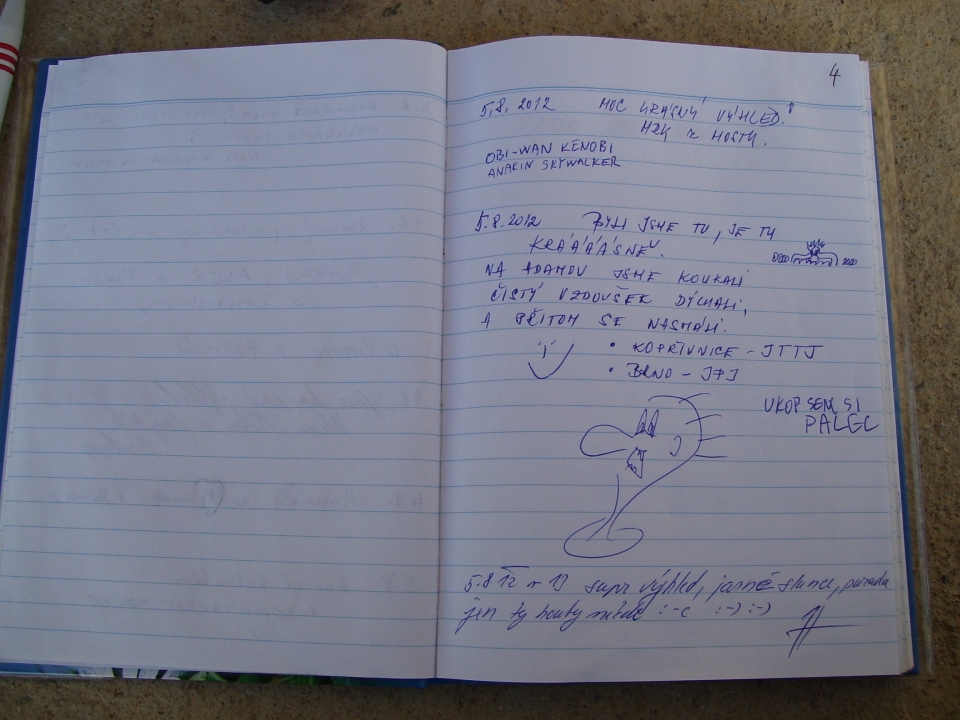 4
5.8. 2012 MOC KRÁSNÝ VÝHLED!
MZK z HOSTY.
OBI-WAN KENOBI
ANAKIN SKYWALKER
5.8.2012 BYLI JSME TU, JE TU
KRÁÁÁÁSNĚ.
NA ADAMOV JSME KOUKALI
ČISTÝ VZDOUŠEK DÝCHALI,
A PŘITOM SE NASMÁLI.
• KOPŘIVNICE - JTTJ
• BRNO - JPJ
UKOP SEM SI
PALEC
5.8 12 supr výhled, jasné slunce, parada
jen ty houby :-( :-) :-)